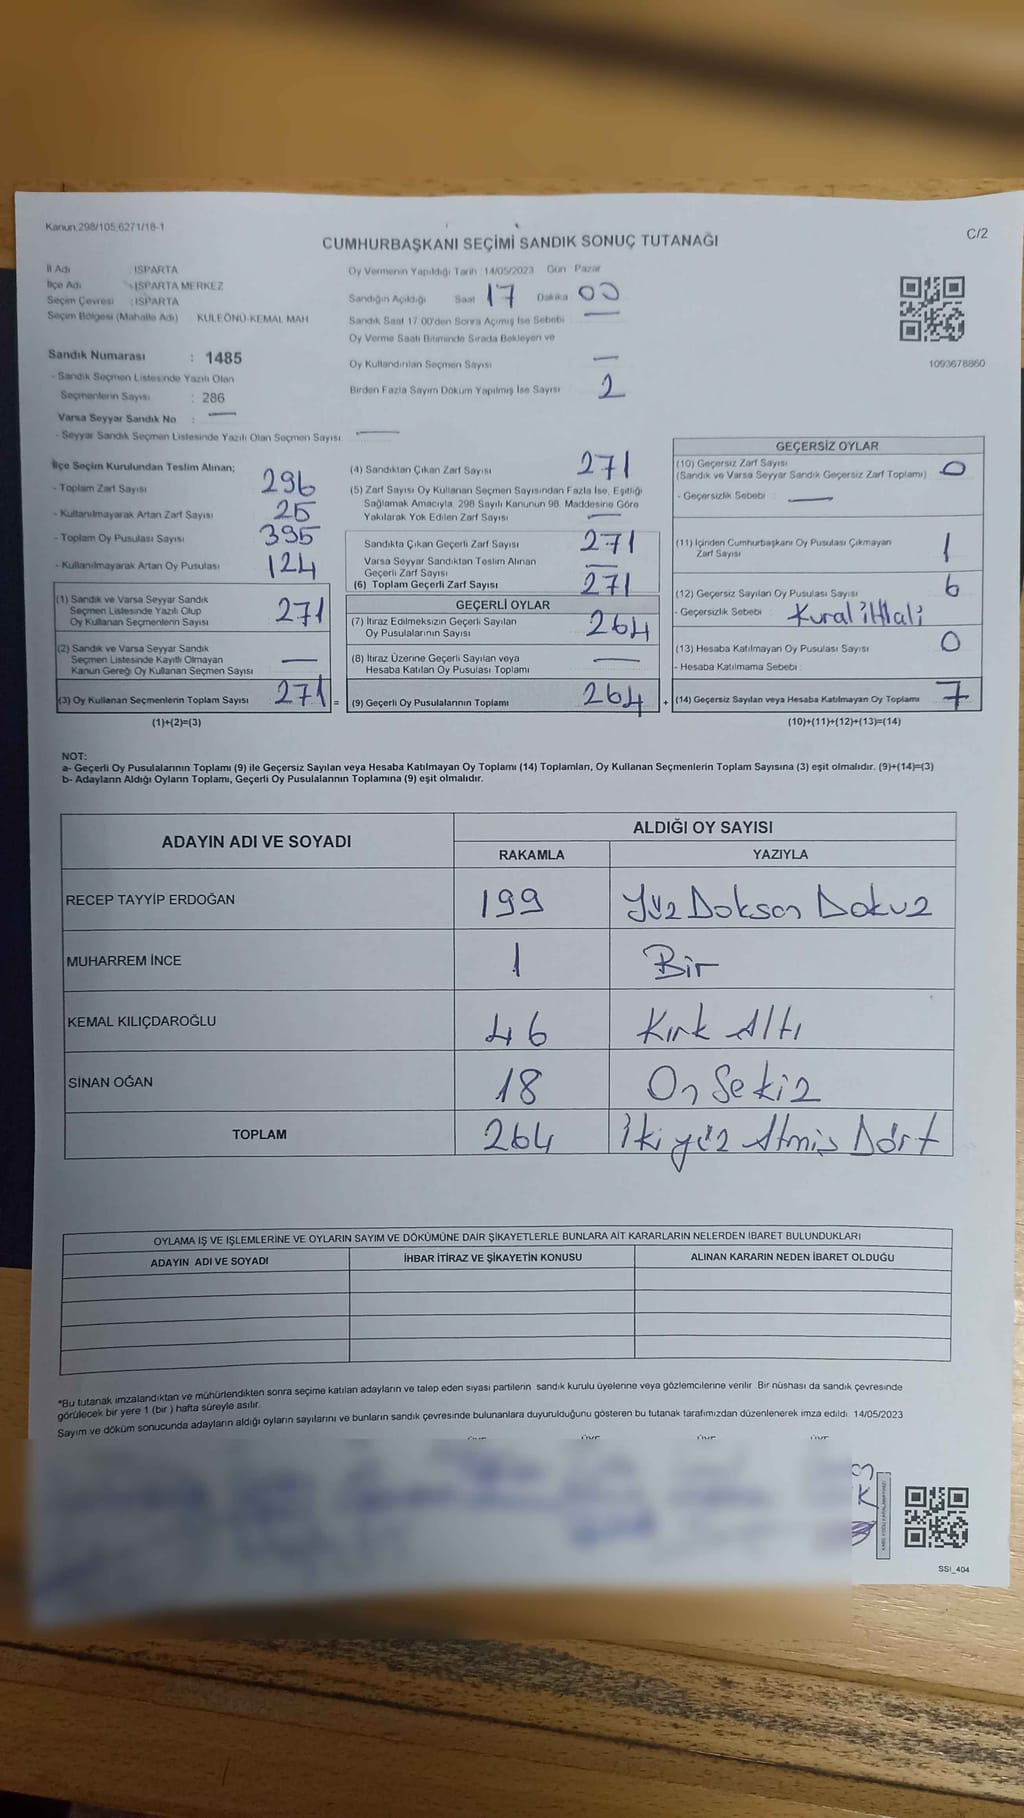 Kanun,298/105,6271/18-1
C/2
CUMHURBAŞKANI SEÇİMİ SANDIK SONUÇ TUTANAĞI
İl Adı : ISPARTA
İlçe Adı : ISPARTA MERKEZ
Seçim Çevresi : ISPARTA
Seçim Bölgesi (Mahalle Adı) KULEÖNÜ-KEMAL MAH
Sandık Numarası : 1485
- Sandık Seçmen Listesinde Yazılı Olan
Seçmenlerin Sayısı : 286
Varsa Seyyar Sandık No : —
- Seyyar Sandık Seçmen Listesinde Yazılı Olan Seçmen Sayısı: —
Oy Vermenin Yapıldığı Tarih 14/05/2023 Gün Pazar
Sandığın Açıldığı Saat 17 Dakika 00
Sandık Saat 17.00'den Sonra Açılmış İse Sebebi —
Oy Verme Saati Bitiminde Sırada Bekleyen ve
Oy Kullandırılan Seçmen Sayısı —
Birden Fazla Sayım Döküm Yapılmış İse Sayısı 2
1093678860
İlçe Seçim Kurulundan Teslim Alınan;
- Toplam Zarf Sayısı 296
- Kullanılmayarak Artan Zarf Sayısı 25
- Toplam Oy Pusulası Sayısı 395
- Kullanılmayarak Artan Oy Pusulası 124
(1) Sandık ve Varsa Seyyar Sandık
Seçmen Listesinde Yazılı Olup
Oy Kullanan Seçmenlerin Sayısı 271
(2) Sandık ve Varsa Seyyar Sandık
Seçmen Listesinde Kayıtlı Olmayan
Kanun Gereği Oy Kullanan Seçmen Sayısı —
(3) Oy Kullanan Seçmenlerin Toplam Sayısı 271 =
(1)+(2)=(3)
(4) Sandıktan Çıkan Zarf Sayısı 271
(5) Zarf Sayısı Oy Kullanan Seçmen Sayısından Fazla İse, Eşitliği
Sağlamak Amacıyla, 298 Sayılı Kanunun 98. Maddesine Göre
Yakılarak Yok Edilen Zarf Sayısı —
Sandıkta Çıkan Geçerli Zarf Sayısı 271
Varsa Seyyar Sandıktan Teslim Alınan
Geçerli Zarf Sayısı —
(6) Toplam Geçerli Zarf Sayısı 271
GEÇERLİ OYLAR
(7) İtiraz Edilmeksizin Geçerli Sayılan
Oy Pusulalarının Sayısı 264
(8) İtiraz Üzerine Geçerli Sayılan veya
Hesaba Katılan Oy Pusulası Toplamı —
(9) Geçerli Oy Pusulalarının Toplamı 264 +
GEÇERSİZ OYLAR
(10) Geçersiz Zarf Sayısı
(Sandık ve Varsa Seyyar Sandık Geçersiz Zarf Toplamı) 0
- Geçersizlik Sebebi : —
(11) İçinden Cumhurbaşkanı Oy Pusulası Çıkmayan
Zarf Sayısı 1
(12) Geçersiz Sayılan Oy Pusulası Sayısı 6
- Geçersizlik Sebebi : Kural ihlali
(13) Hesaba Katılmayan Oy Pusulası Sayısı 0
- Hesaba Katılmama Sebebi :
(14) Geçersiz Sayılan veya Hesaba Katılmayan Oy Toplamı 7
(10)+(11)+(12)+(13)=(14)
NOT:
a- Geçerli Oy Pusulalarının Toplamı (9) ile Geçersiz Sayılan veya Hesaba Katılmayan Oy Toplamı (14) Toplamları, Oy Kullanan Seçmenlerin Toplam Sayısına (3) eşit olmalıdır. (9)+(14)=(3)
b- Adayların Aldığı Oyların Toplamı, Geçerli Oy Pusulalarının Toplamına (9) eşit olmalıdır.
ADAYIN ADI VE SOYADI ALDIĞI OY SAYISI
RAKAMLA YAZIYLA
RECEP TAYYİP ERDOĞAN 199 Yüz Doksan Dokuz
MUHARREM İNCE 1 Bir
KEMAL KILIÇDAROĞLU 46 Kırk Altı
SİNAN OĞAN 18 On Sekiz
TOPLAM 264 İkiyüz Atmış Dört
OYLAMA İŞ VE İŞLEMLERİNE VE OYLARIN SAYIM VE DÖKÜMÜNE DAİR ŞİKAYETLERLE BUNLARA AİT KARARLARIN NELERDEN İBARET BULUNDUKLARI
ADAYIN ADI VE SOYADI İHBAR İTİRAZ VE ŞİKAYETİN KONUSU ALINAN KARARIN NEDEN İBARET OLDUĞU
*Bu tutanak imzalandıktan ve mühürlendikten sonra seçime katılan adayların ve talep eden siyasi partilerin sandık kurulu üyelerine veya gözlemcilerine verilir. Bir nüshası da sandık çevresinde
görülecek bir yere 1 (bir) hafta süreyle asılır.
Sayım ve döküm sonucunda adayların aldığı oyların sayılarını ve bunların sandık çevresinde bulunanlara duyurulduğunu gösteren bu tutanak tarafımızdan düzenlenerek imza edildi. 14/05/2023
SSI_404